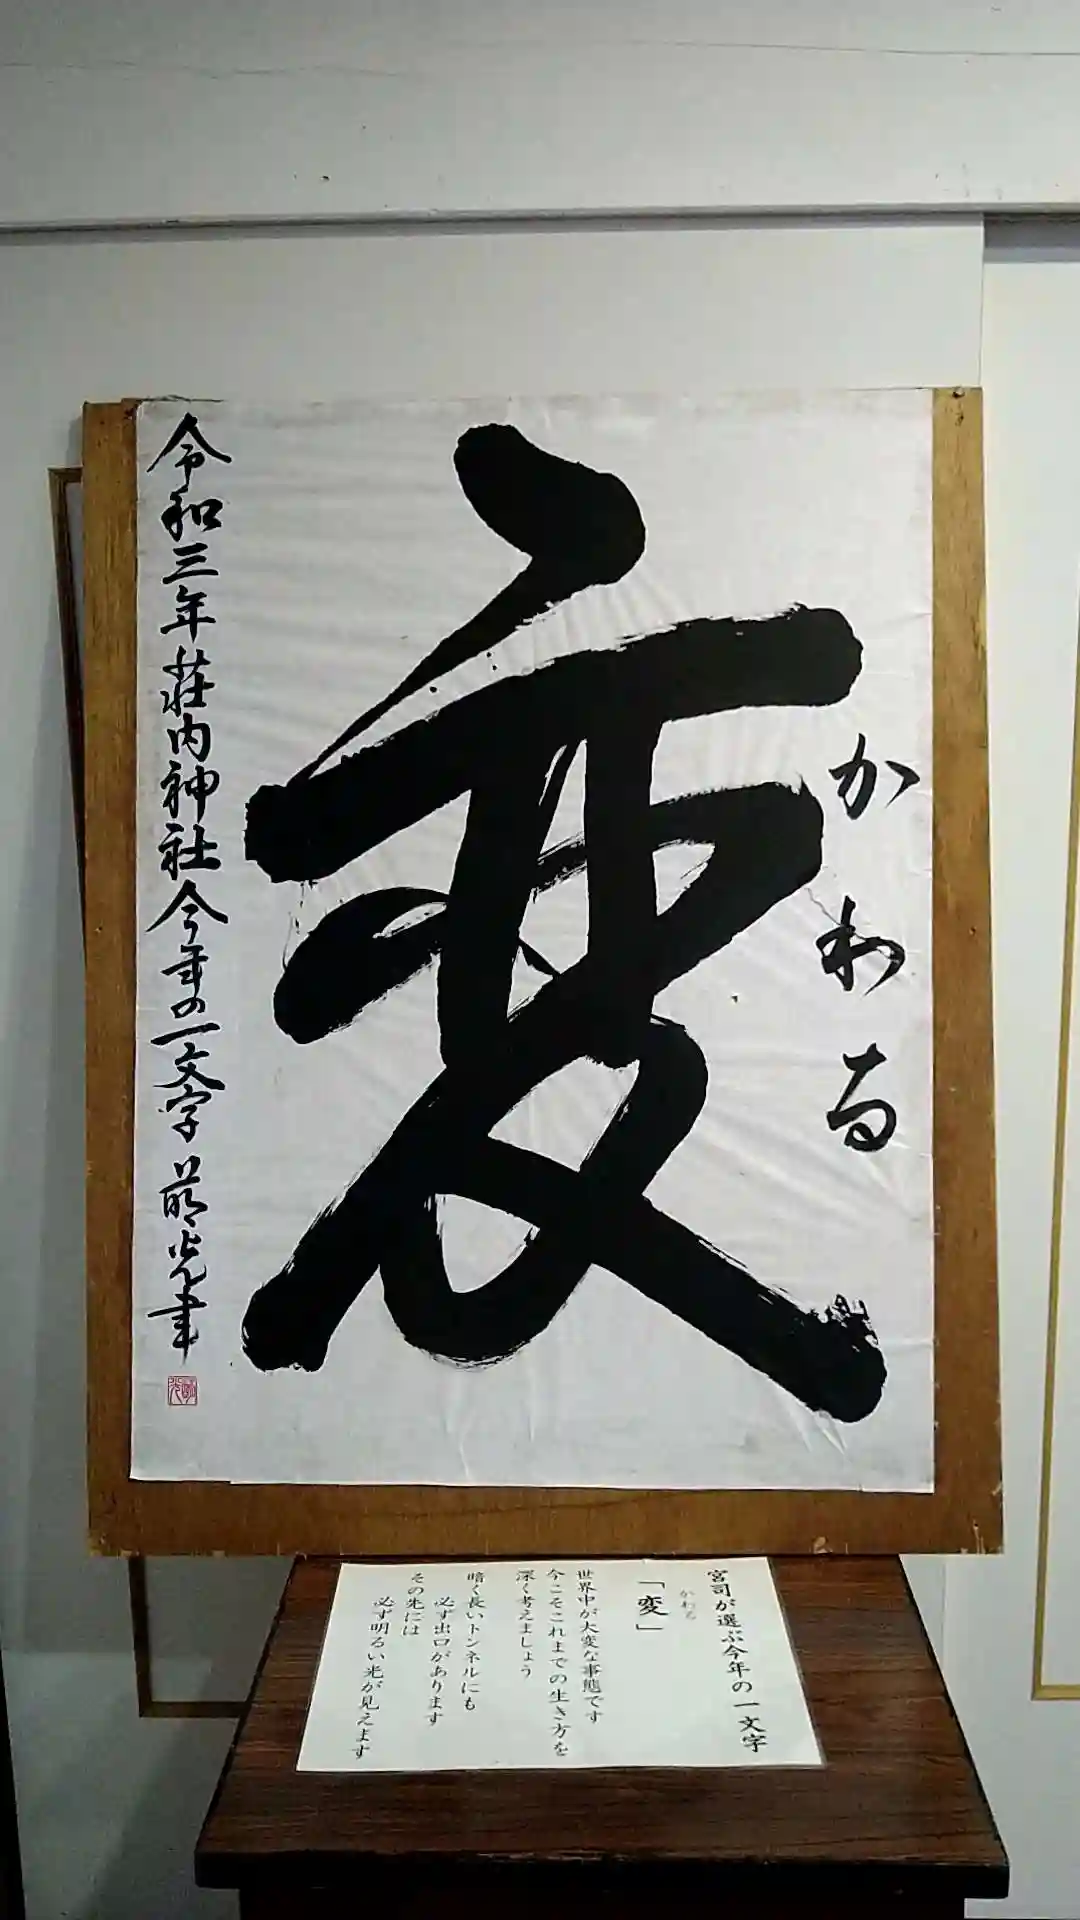 かわる
変
令和三年荘内神社今年の一文字 萠光書
宮司が選ぶ今年の一文字
かわる
「変」
世界中が大変な事態です
今こそこれまでの生き方を
深く考えましょう
暗く長いトンネルにも
必ず出口があります
その先には
必ず明るい光が見えます